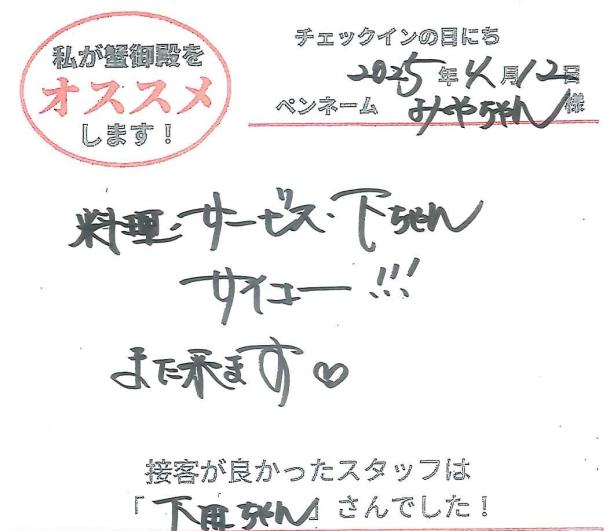 私が蟹御殿を
オススメ
します！
チェックインの日にち
2025年4月12日
ペンネーム みやちゃん様
料理・サービス・下ちゃん
サイコー!!!
また来ます♡
接客が良かったスタッフは
「下田ちゃん」さんでした！